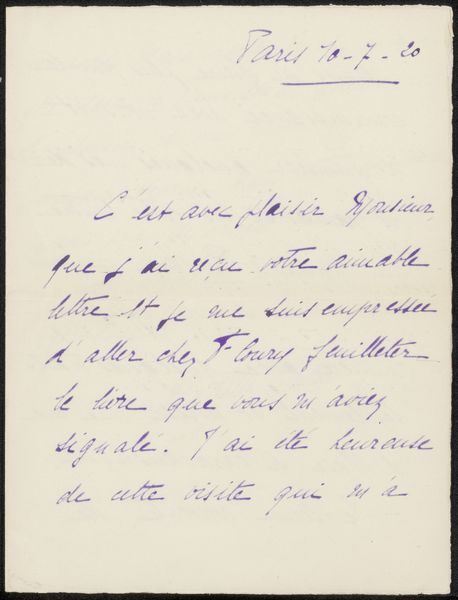 Paris 10-7-20
C'est avec plaisir Monsieur,
que j'ai reçu votre aimable
lettre et je me suis empressée
d'aller chez Floury feuilleter
le livre que vous m'aviez
signalé. J'ai été heureuse
de cette visite qui m'a